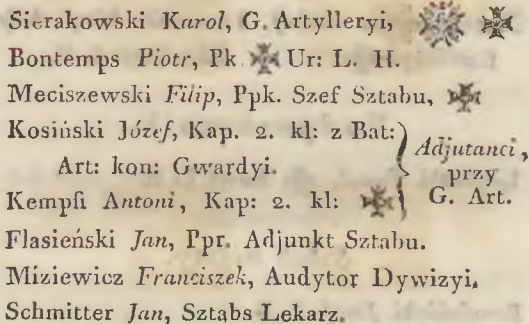 Sierakowski Karol, G. Artylleryi,
Bontemps Piotr, Pk. Ur: L. H.
Meciszewski Filip, Ppk. Szef Sztabu,
Kosiński Józef, Kap. 2. kl: z Bat:
Art: kon: Gwardyi.
Kempfi Antoni, Kap: 2. kl:
Adjutanci,
przy
G. Art.
Flasieński Jan, Ppr. Adjunkt Sztabu.
Miziewicz Franciszek, Audytor Dywizyi,
Schmitter Jan, Sztabs Lekarz.